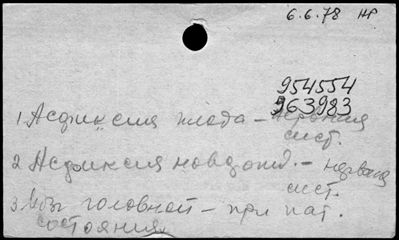 6.6.78 НР
954554
963983
1. Асфиксия плода – нервная
сист.
2. Асфиксия новорожд. – нервная
сист.
3. Мозг головной – при пат.
состояниях